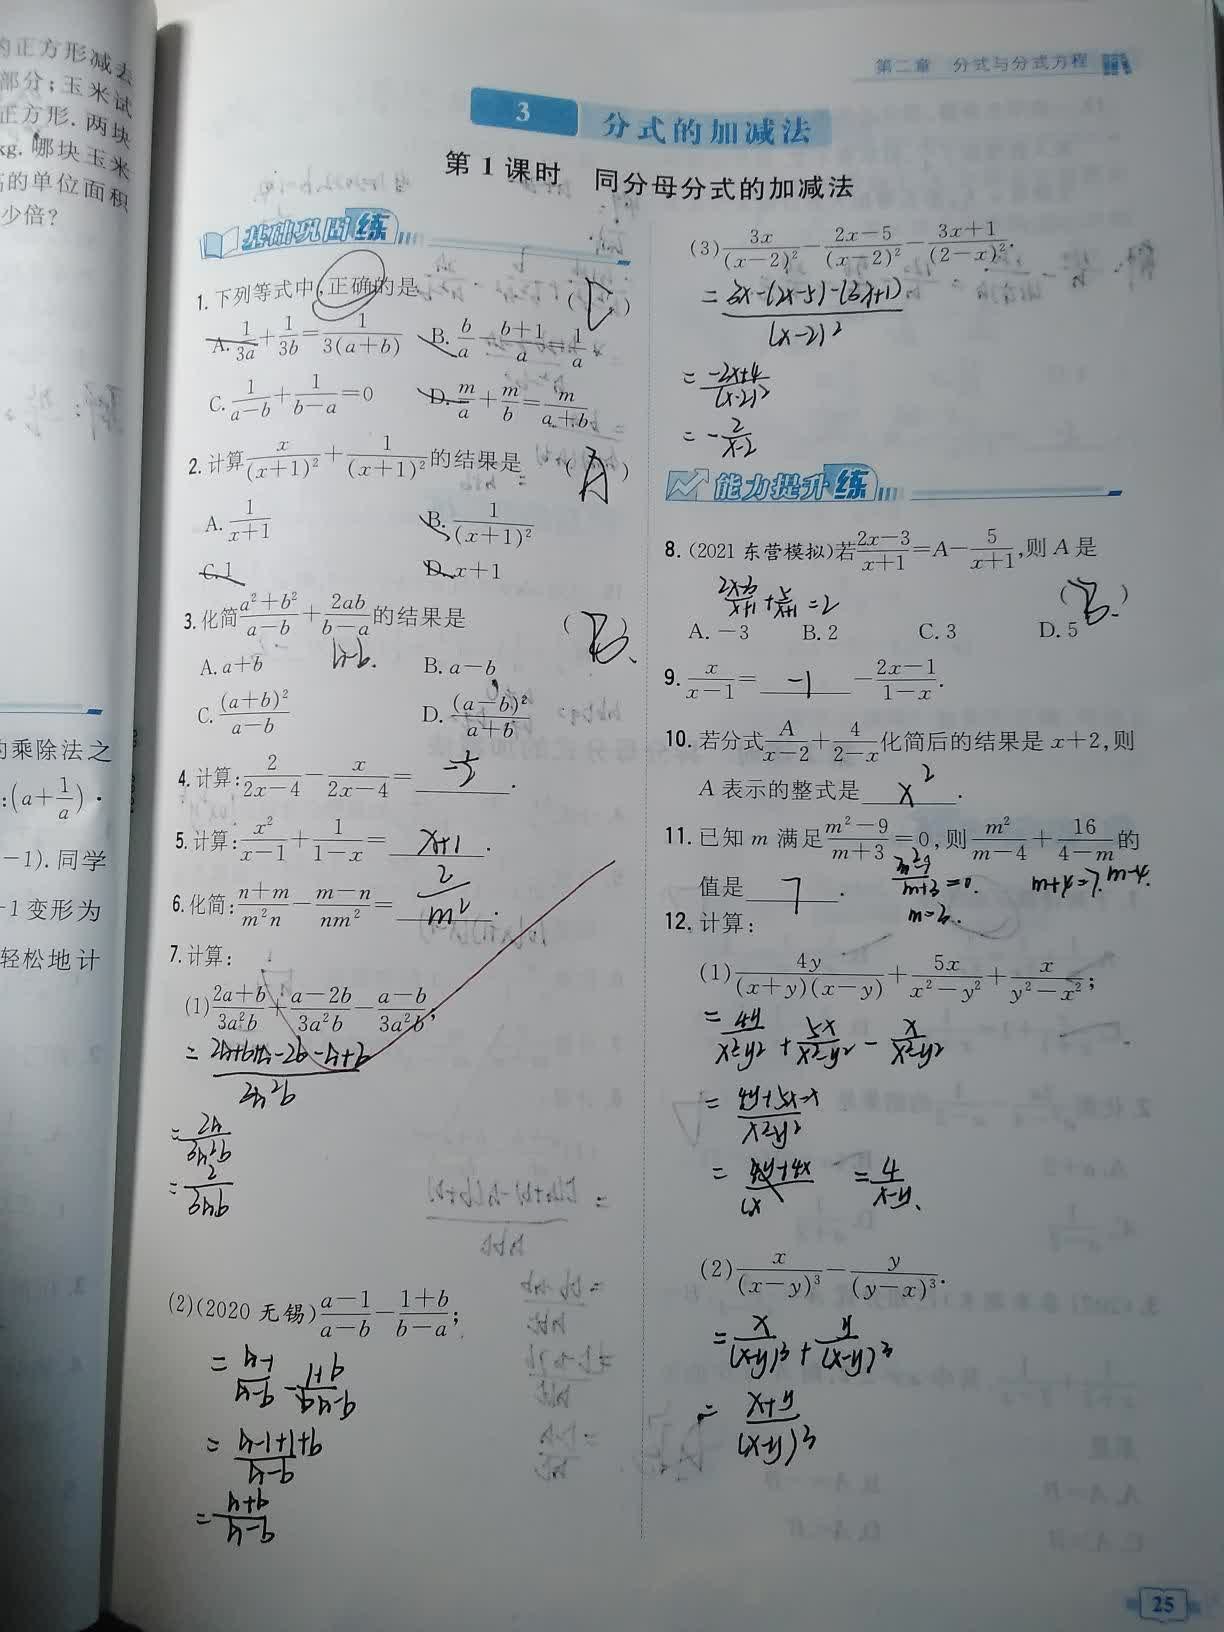 的正方形减去
部分；玉米试
正方形．两块
kg．哪块玉米
高的单位面积
少倍？
的乘除法之
:(a+1/a)·
-1).同学
-1变形为
轻松地计
第二章 分式与分式方程
3 分式的加减法
第1课时 同分母分式的加减法
基础巩固练
1.下列等式中,正确的是 ( )
A. 1/3a + 1/3b = 1/3(a+b) B. b/a - b+1/a = 1/a
C. 1/(a-b) + 1/(b-a) = 0 D. m/a + m/b = m/(a+b)
2.计算 x/(x+1)² + 1/(x+1)² 的结果是 (A)
A. 1/(x+1) B. 1/(x+1)²
C. 1 D. x+1
3.化简 (a²+b²)/(a-b) + 2ab/(b-a) 的结果是 (B)
A. a+b a-b. B. a-b
C. (a+b)²/(a-b) D. (a-b)²/(a+b)
4.计算: 2/(2x-4) - x/(2x-4) = -1/2.
5.计算: x²/(x-1) + 1/(1-x) = x+1.
6.化简: (n+m)/m²n - (m-n)/nm² = 2/m².
7.计算:
(1) (2a+b)/3a²b + (a-2b)/3a²b - (a-b)/3a²b;
= (2a+b+a-2b-a+b)/3a²b
= 2a/3a²b
= 2/3ab
(2)(2020无锡) (a-1)/(a-b) - (1+b)/(b-a);
= (a-1+1+b)/(a-b)
= (a+b)/(a-b)
(3) 3x/(x-2)² - (2x-5)/(x-2)² - (3x+1)/(2-x)².
= (3x-(2x-5)-(3x+1))/(x-2)²
= (-2x+4)/(x-2)²
= -2/(x-2)
能力提升练
8.(2021东营模拟)若 (2x-3)/(x+1) = A - 5/(x+1), 则A是
(2x-3)/(x+1) + 5/(x+1) = 2 (B.)
A. -3 B. 2 C. 3 D. 5
9. x/(x-1) = -1 - (2x-1)/(1-x).
10.若分式 A/(x-2) + 4/(2-x) 化简后的结果是x+2,则
A表示的整式是 x².
11.已知m满足 (m²-9)/(m+3) = 0, 则 m²/(m-4) + 16/(4-m) 的
值是 7.
(m²-9)/(m+3) = 0. m+4=7.
m=3.
12.计算:
(1) 4y/(x+y)(x-y) + 5x/(x²-y²) + x/(y²-x²);
= 4y/(x²-y²) + 5x/(x²-y²) - x/(x²-y²)
= (4y+5x-x)/(x²-y²)
= (4y+4x)/(x = 4/(x-y).
(2) x/(x-y)³ - y/(y-x)³.
= x/(x-y)³ + y/(x-y)³
= (x+y)/(x-y)³
25